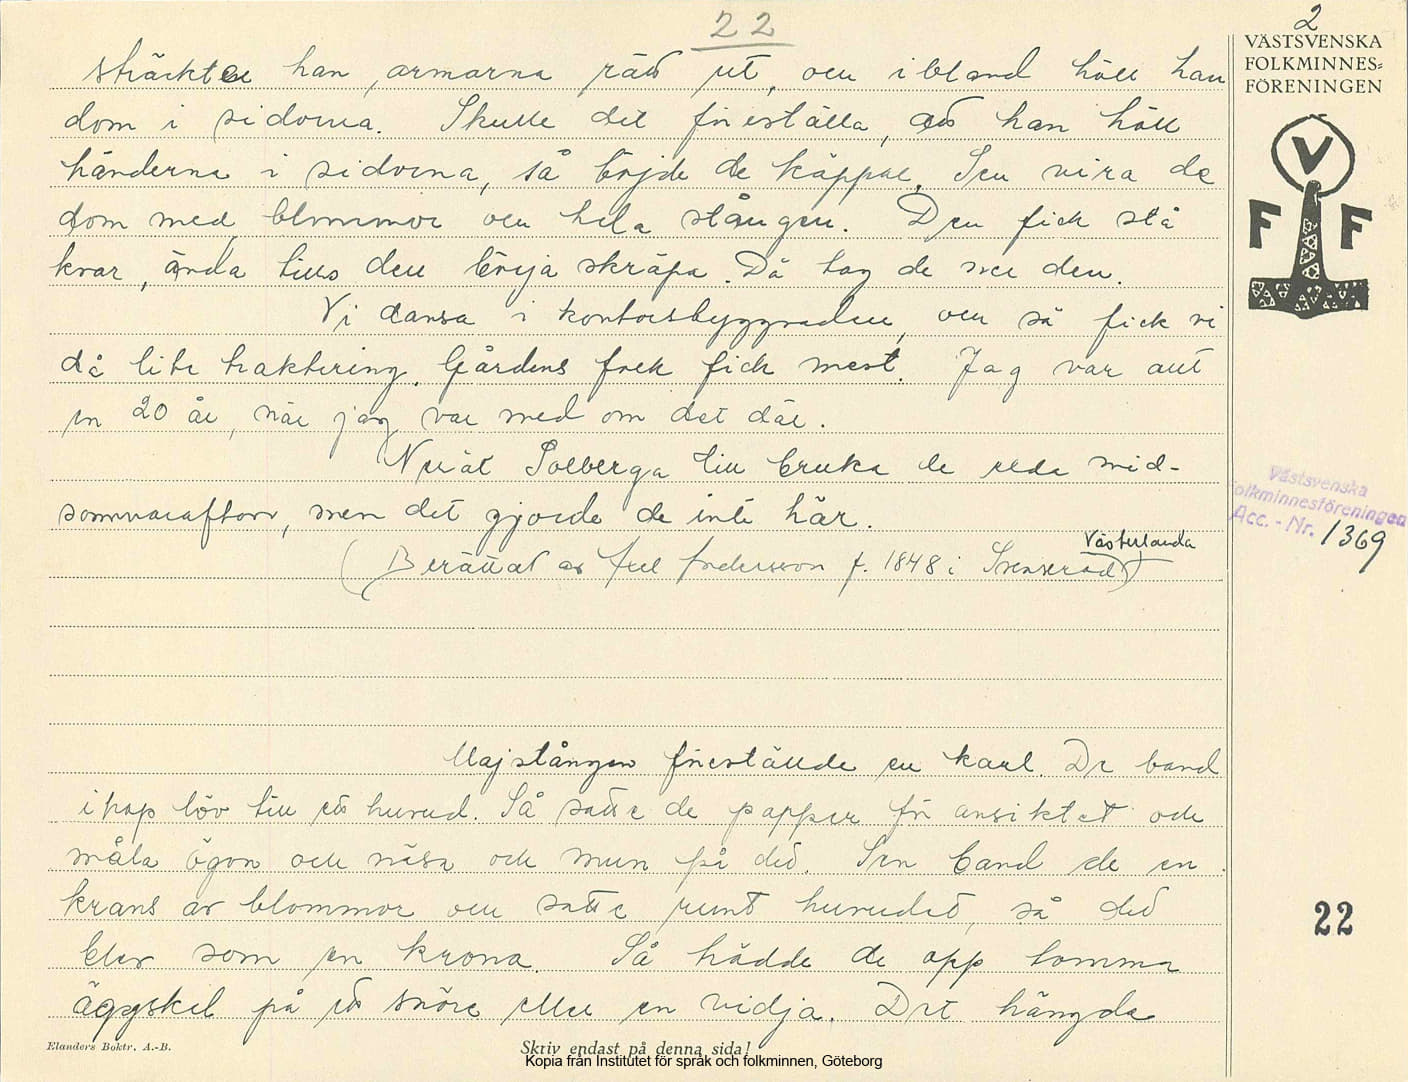 22
2
VÄSTSVENSKA
FOLKMINNES=
FÖRENINGEN
V
F F
sträckte han armarna rätt ut, och ibland höll han
dom i sidorna. Skulle det föreställa, att han höll
händerna i sidorna, så böjde de käppar. Sen vira de
dom med blommor och hela stången. Den fick stå
kvar, ända tills den börja skräpa. Då tog de ner den.
Vi dansa i kontorsbyggnaden, och så fick vi
då lite traktering. Gårdens folk fick mest. Jag var allt
en 20 år, när jag var med om det där.
Neråt Solberga till bruka de reda mid-
sommarafton, men det gjorde de inte här.
Västerlanda
(Berättat av Axel Andersson f. 1848 i Svenseröd)
Västsvenska
Folkminnesföreningen
Acc. - Nr. 1369
Majstången föreställde en karl. De band
ihop löv till ett huvud. Så satte de papper för ansiktet och
måla ögon och näsa och mun på det. Sen band de en
krans av blommor och satte runt huvudet, så det
blev som en krona. Så hädde de opp tomma
äggskal på ett snöre eller en vidja. Det hängde
22
Elanders Boktr. A.-B.
Skriv endast på denna sida!
Kopia från Institutet för språk och folkminnen, Göteborg